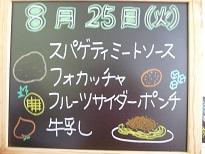 8月25日(火)
スパゲティミートソース
フォカッチャ
フルーツサイダーポンチ
牛乳